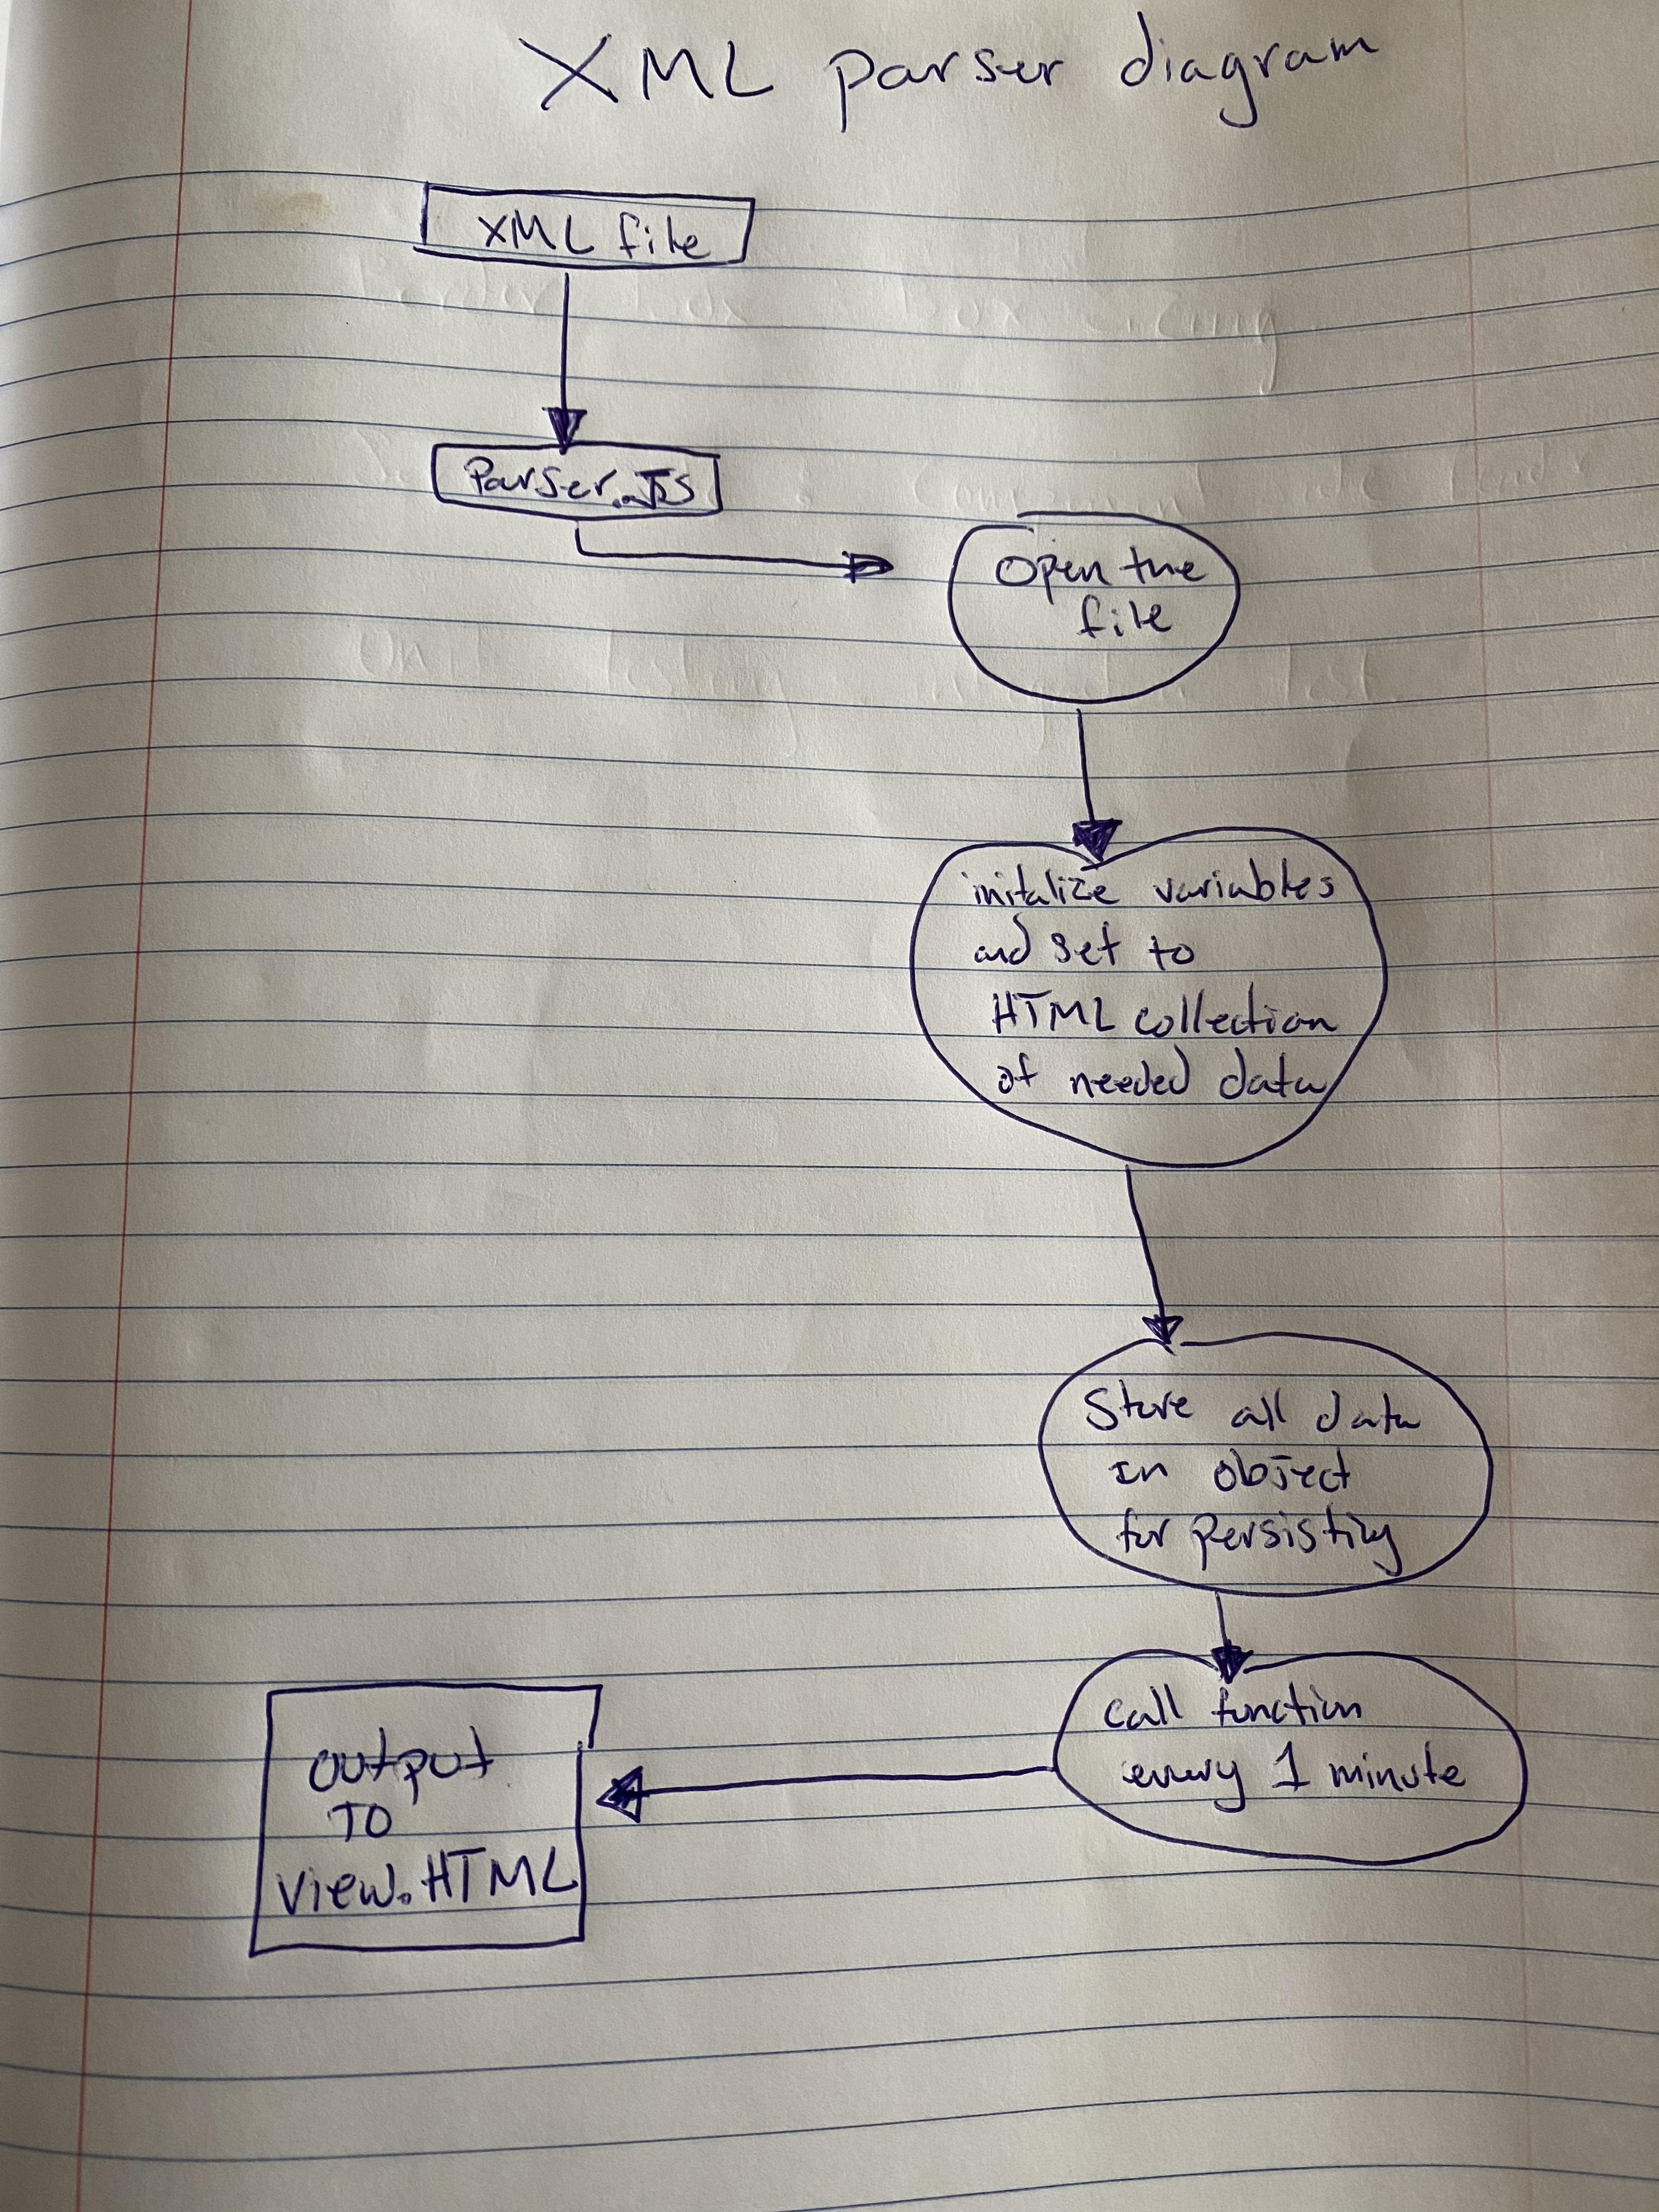 XML parser diagram
XML file
Parser.JS
Open the
file
initalize variables
and set to
HTML collection
of needed data
Store all data
in object
for persisting
call function
every 1 minute
output
TO
view.HTML